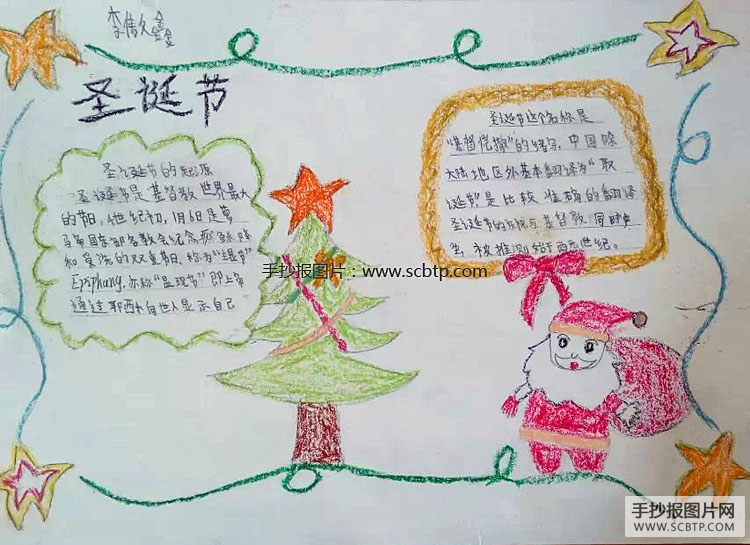 圣诞节
圣诞节的起源
圣诞节是基督教世界最大
的节日。4世纪初,1月6日是
教会纪念耶稣降
和受洗的双重节日,称为“主显节”
Epiphany,亦称“显现节”即上帝
通过耶稣向世人显示自己
圣诞节这个名称是
“基督弥撒”的缩写,中国除
大陆地区外基本翻译为“耶
诞节”是比较准确的翻译
圣诞节的
被推测始于西元世纪。
手抄报图片:www.scbtp.com
手抄报图片网
WWW.SCBTP.COM